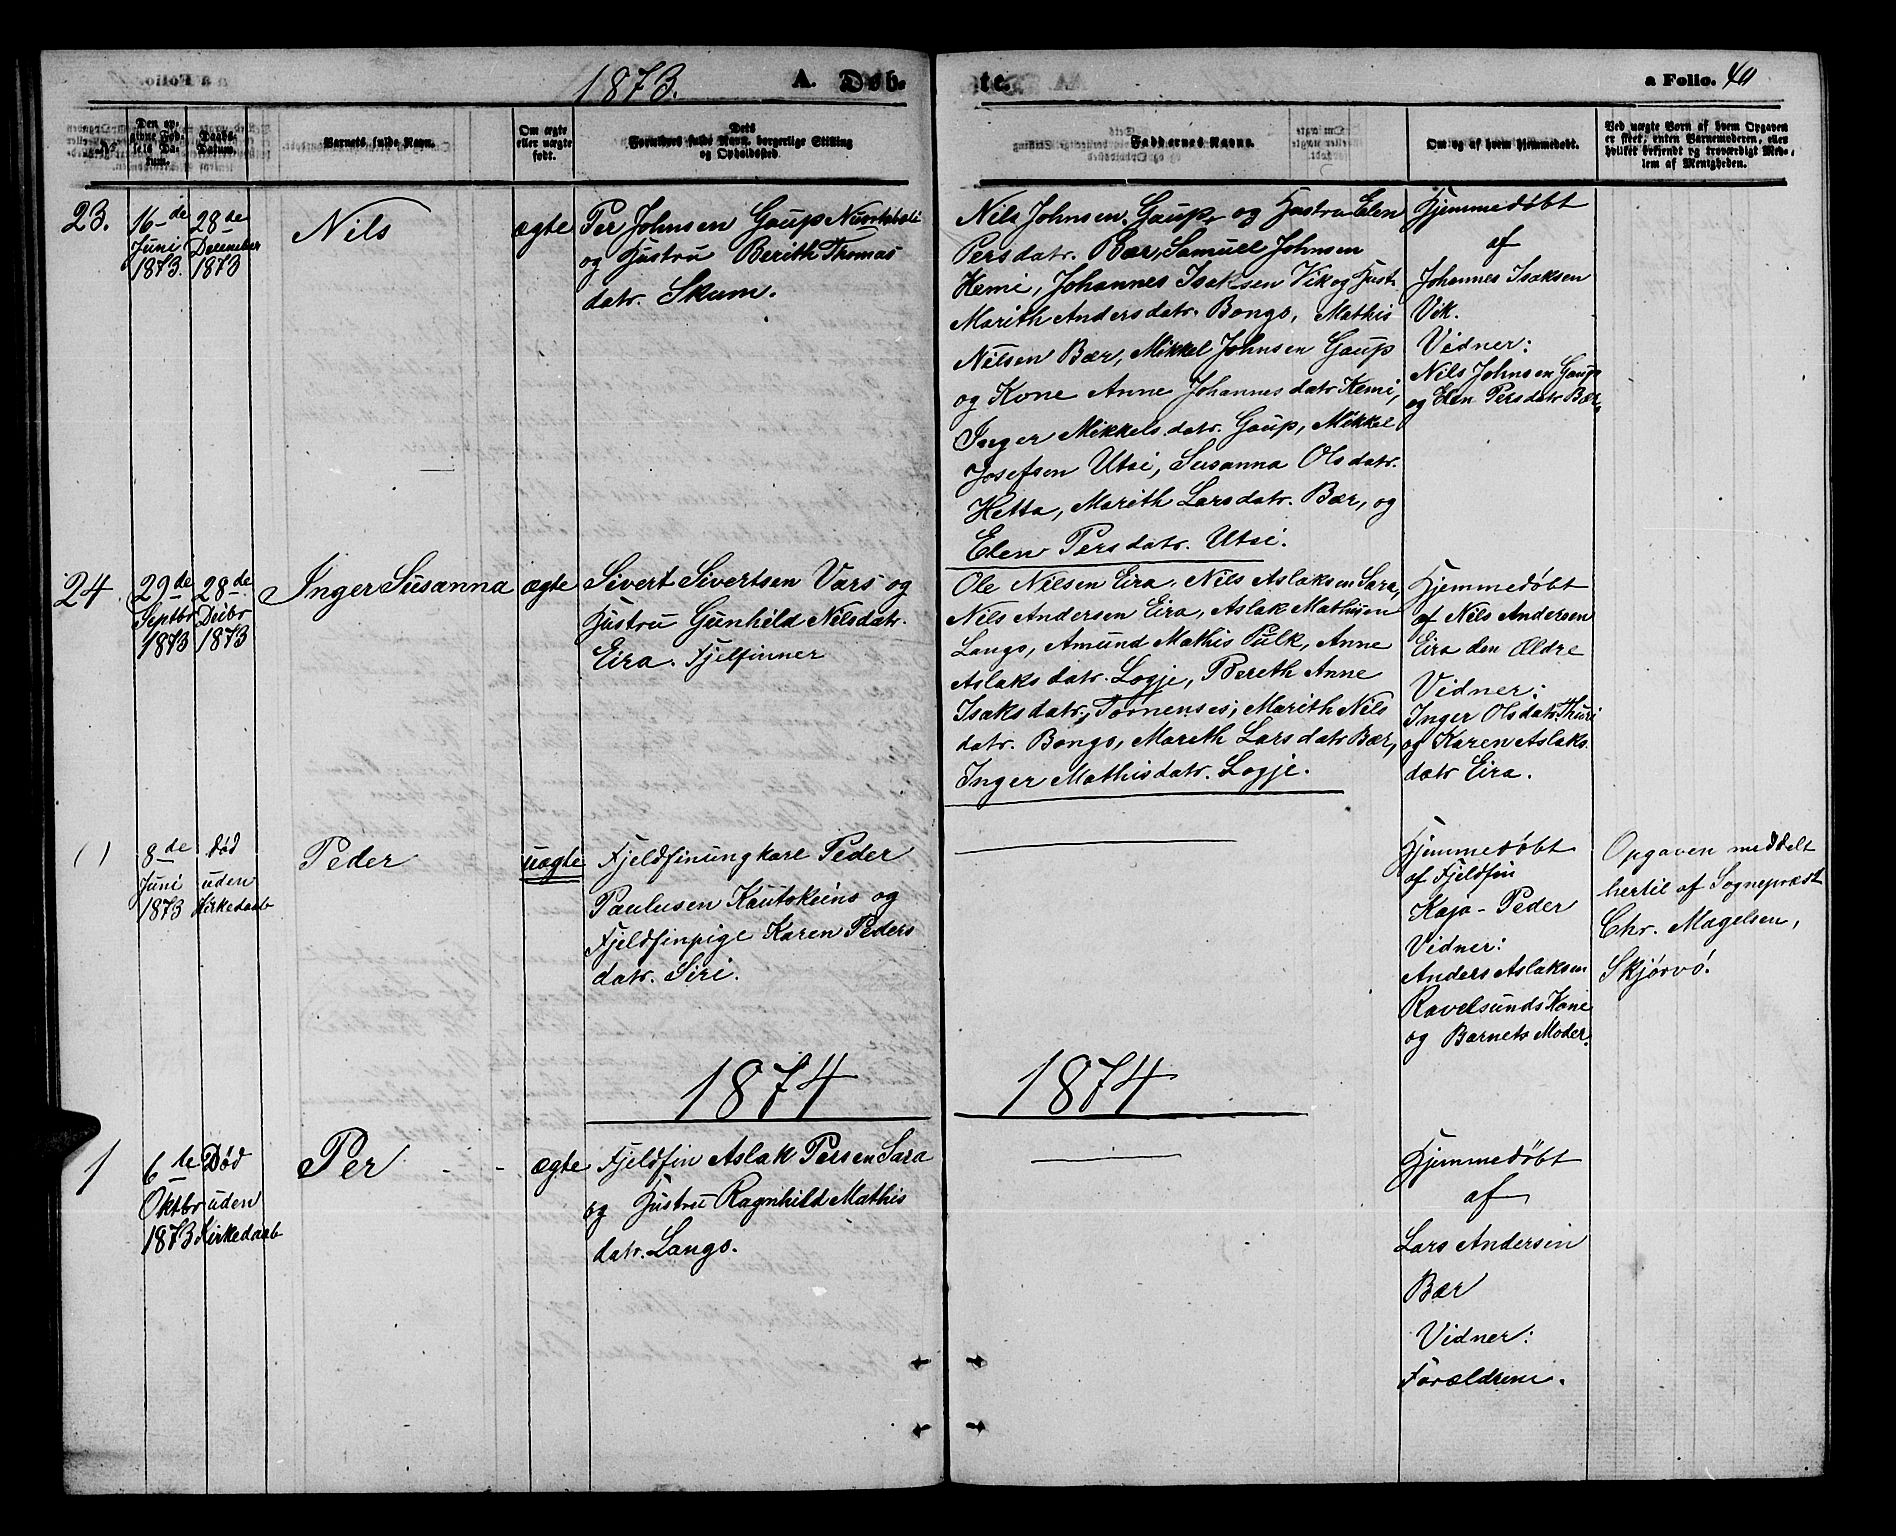 1873. A. Døb-
te. a Folio. 40
No.
Den opgivne Fødsels Datum.
Daabs-Datum.
Barnets fulde Navn.
Om ægte eller uægte født.
Dets Forældres fulde Navn, borgerlige Stilling og Opholdssted.
Faddernes Navne.
Om og af hvem hjemmedøbt.
Ved uægte Børn af hvem Opgaven er skeet, enten Barnemoderen, eller hvilket bekjendt og troværdigt Medlem af Menigheden.
23.
16de
Juni
1873.
28de
December
1873
Nils
ægte
Per Johnsen Gaup
og Hustru Berith Thomas
datr. Skum.
Nils Johnsen Gaup og Hustru Elen
Persdatr. Bær, Samuel Johnsen
Kemi, Johannes Isaksen Vik og Hust.
Marith Andersdatr. Bongo, Mathis
Nilsen Bær, Mikkel Johnsen Gaup
og Kone Anne Johannesdatr Kemi,
Inger Mikkelsdatr. Gaup, Mikkel
Josefsen Utsi, Susanna Olsdatr.
Hetta, Marith Larsdatr. Bær, og
Elen Persdatr. Utsi.
Hjemmedøbt
af
Johannes Isaksen
Vik.
Vidner:
Nils Johnsen Gaup
og Elen Persdatr Bær,
24.
29de
Septbr
1873
28de
Decbr
1873
Inger Susanna
ægte
Sivert Sivertsen Vars og
Hustru Gunhild Nilsdatr.
Eira. Fjelfinner
Ole Nilsen Eira, Nils Aslaksen Sara,
Nils Andersen Eira, Aslak Mathisen
Lango, Amund Mathis Pulk, Anne
Aslaksdatr. Logje, Bereth Anne
Isaksdatr. Tornensis, Marith Nils
datr. Bongo, Mareth Larsdatr Bær,
Inger Mathisdatr. Logje.
Hjemmedøbt
af Nils Andersen
Eira den Ældre
Vidner:
Inger Olsdatr. Thuri
og Karen Aslaks.
datr Eira.
( )
8de
Juni
1873
død
uden
Kirkedaab
Peder
uægte
Fjeldfinungkarl Peder
Paulusen Kautokeino og
Fjeldfinpige Karen Peders
datr. Siri.
Hjemmedøbt
af Fjeldfin
Kaja-Peder
Vidner:
Anders Aslaksen
Ravelsunds Kone
og Barnets Moder.
Opgaven meddelt
hertil af Sognepræst
Chr. Magelsen,
Skjørvø.
1874
1874
1
6te
Oktbr
1873
Død
uden
Kirkedaab
Per
ægte
Fjeldfin Aslak Persen Sara
og Hustru Ragnhild Mathis
datr. Lango.
Hjemmedøbt
af
Lars Andersen
Bær
Vidner:
Forældrene.